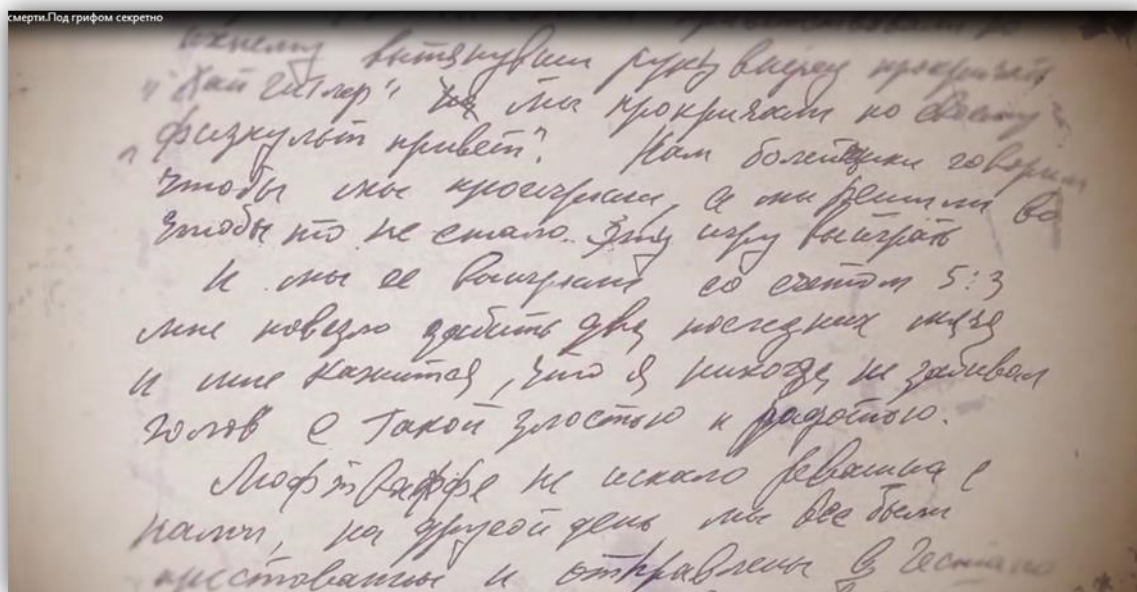 смерти.Под грифом секретно
вытянувши руку вперед прокричать
"Хай Гитлер" мы прокричали по своему
"физкульт привет". Нам болельщики говорили
чтобы мы проиграли, а мы решили во
чтобы то не стало эту игру выиграть
И мы ее выиграли со счетом 5:3
мне повезло забить два последних мяча
и мне кажится, что я никогда не забивал
голов с такой злостью и радостью.
Люфтваффе не искало реванша с
нами, на другой день мы все были
арестованы и отправлены в Гестапо